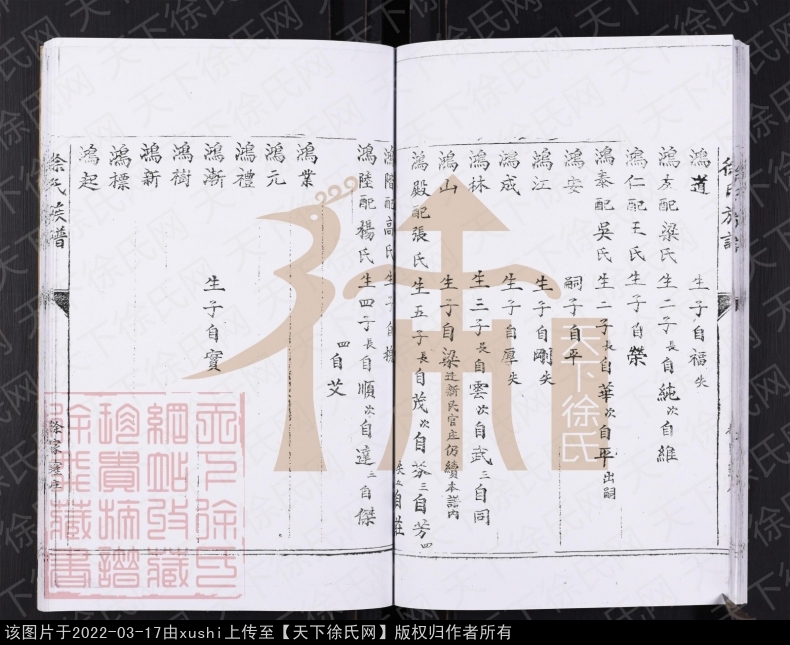 徐氏族譜
鴻道 生子自福失
鴻友配梁氏生二子長自純次自維
鴻仁配王氏生子自榮
鴻泰配吳氏生二子長自華次自平出嗣
鴻安 嗣子自平
鴻江 生子自剛失
鴻成 生子自厚失
鴻林 生三子長自雲次自武三自同
鴻山 生子自梁迁新民官庄仍續本譜內
鴻殿配張氏生五子長自茂次自芬三自芳四
自莊
鴻階配高氏生子自
鴻陸配楊氏生四子長自順次自達三自傑
四自艾
鴻業
鴻元
鴻禮
鴻漸 生子自寳
鴻樹
鴻新
鴻標
鴻起
徐氏族譜
徐家
天下徐氏
天下徐氏網站收藏珍貴抽譜徐氏藏書
天下徐氏网
该图片于2022-03-17由xushi上传至【天下徐氏网】版权归作者所有